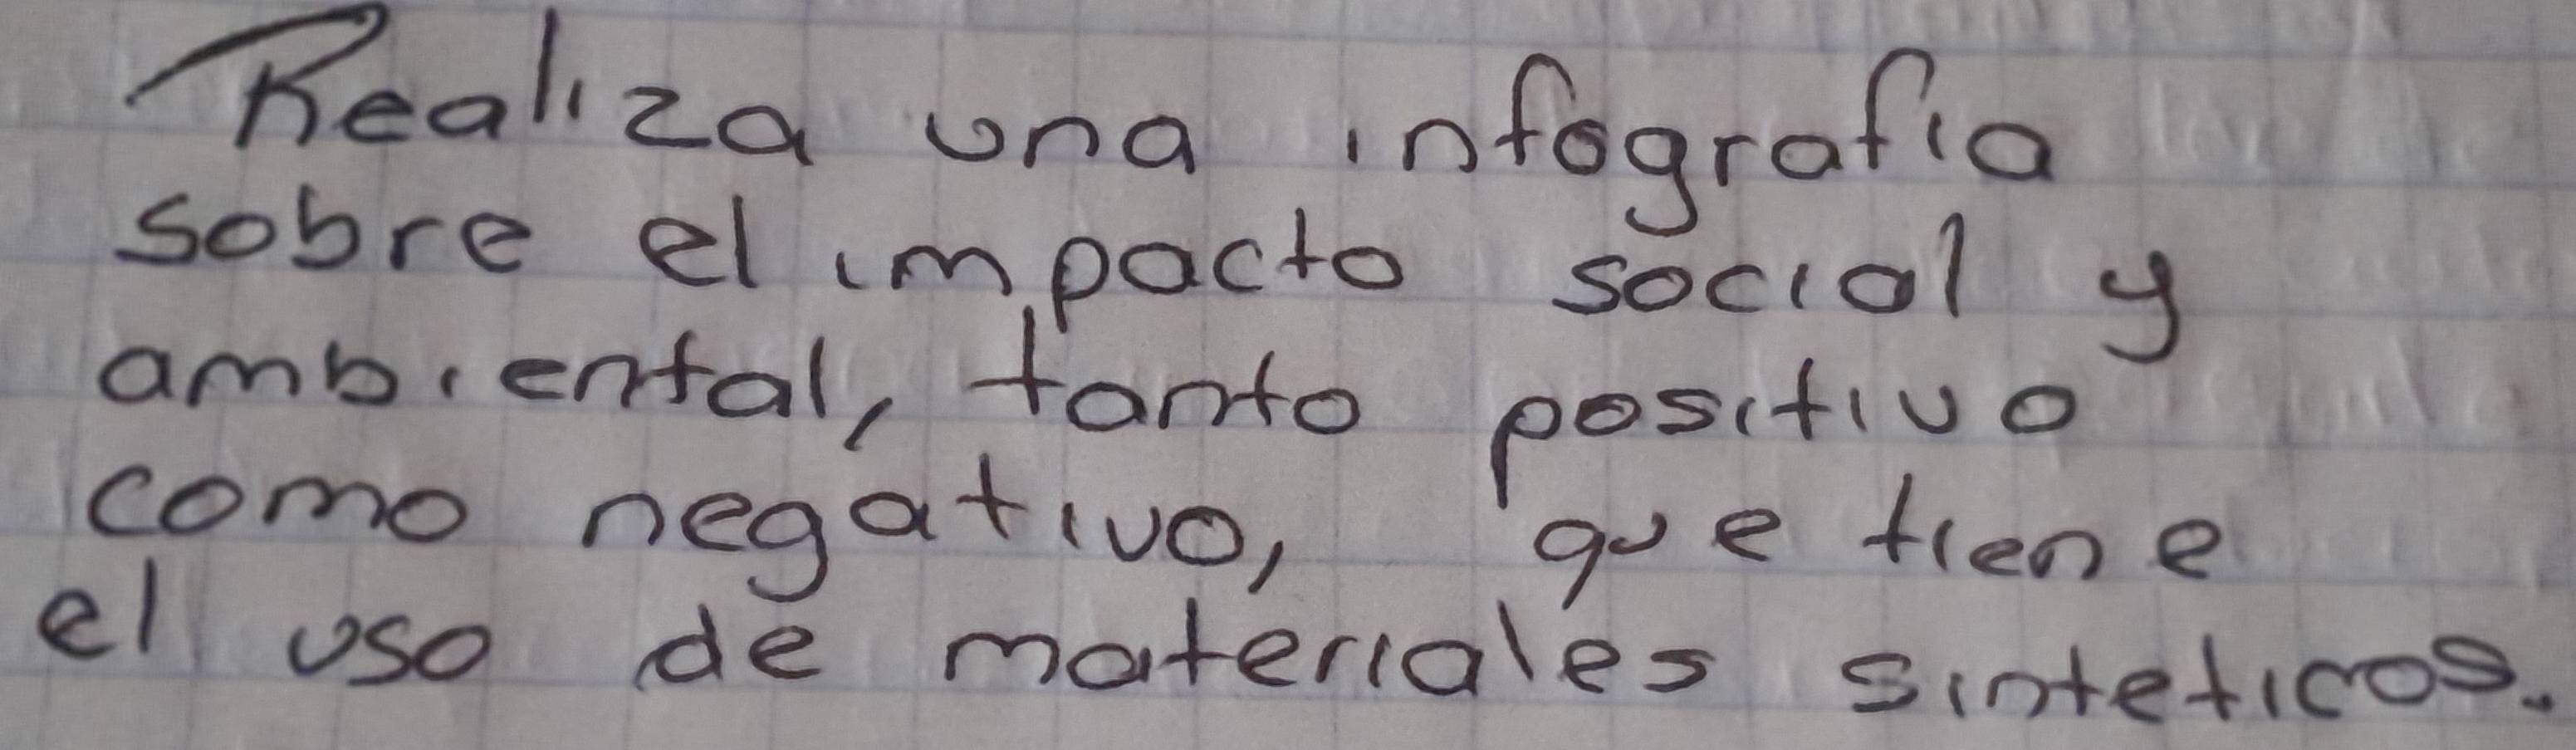 Realiza una infografia
sobre el impacto social y
ambiental, tanto positivo
como negativo, que tiene
el uso de materiales sinteticos.